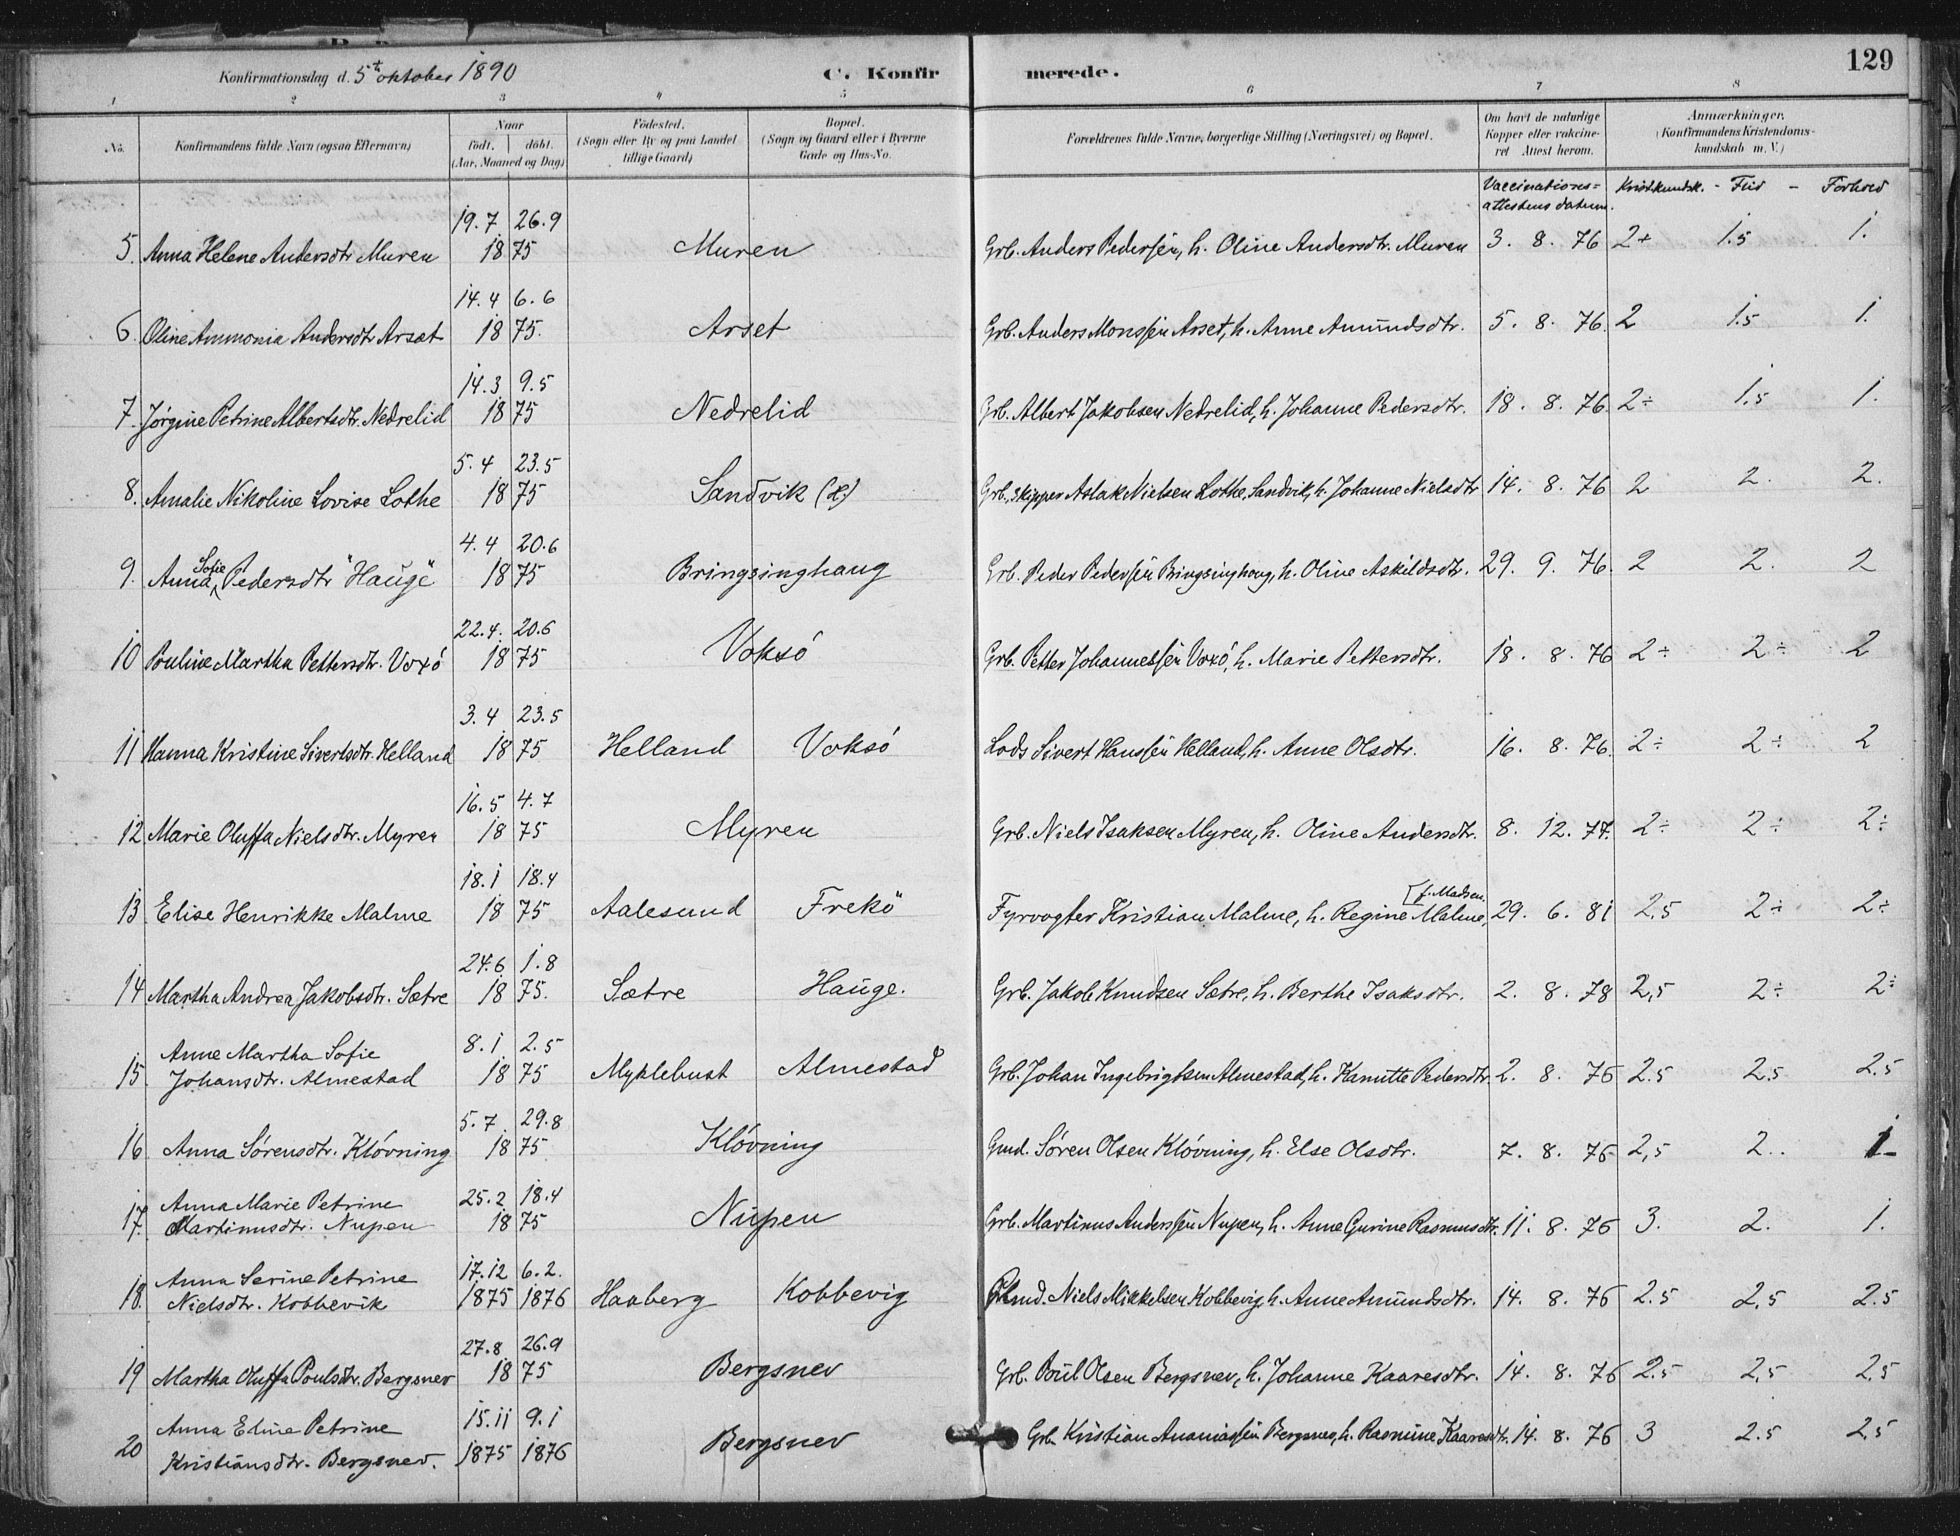 129
Konfirmationsdag d. 5te oktober 1890 C. Konfirmerede.
1 2 3 4 5 6 7 8
No. Konfirmandens fulde Navn (ogsaa Efternavn) Naar født. døbt. (Aar, Maaned og Dag) Fødested. (Sogn eller By og paa Landet tillige Gaard) Bopæl. (Sogn og Gaard eller i Byerne Gade og Hus-No. Forældrenes fulde Navne, borgerlige Stilling (Næringsvei) og Bopæl. Om havt de naturlige Kopper eller vaccineret Attest herom. Anmærkninger. (Konfirmandens Kristendomskundskab m. V.)
Vaccinations= attestens datum. Kristkundsk. - Flid - Forhold
19.7 26.9
5. Anna Helene Andersdtr Muren 1875 Muren Grb. Anders Pedersen, h. Oline Andersdtr. Muren 3. 8. 76 2+ 1.5 1.
14.4 6.6
6. Oline Ammonia Andersdtr Arset 1875. Arset Grb. Anders Monssen Arset, h. Anne Amundsdtr. 5. 8. 76. 2 1.5 1.
14.3 9.5
7. Jørgine Petrine Albertsdtr. Nedrelid 1875 Nedrelid Grb. Albert Jakobsen Nedrelid, h. Johanne Pedersdtr. 18. 8. 76. 2÷ 1.5 1.
5.4 23.5
8. Amalie Nikoline Lovise Lothe 1875 Sandvik Grb. skipper Aslak Nielsen Lothe, Sandvik, h. Johanne Nielsdtr 14. 8. 76 2 2. 2.
4.4 20.6
9. Anna Sofie Pedersdtr "Hauge" 1875 Bringsinghaug Grb. Peder Pedersen Bringsinghaug, h. Oline Askildsdtr. 29. 9. 76. 2 2. 2
22.4. 20.6
10 Pouline Martha Pettersdtr. Voxø 1875 Voksø Grb. Petter Johannessen Voxø, h. Marie Pettersdtr. 18. 8. 76 2÷ 2÷ 2
3.4 23.5
11 Hanna Kristine Sivertsdtr. Helland 1875 Helland Voksø Lods Sivert Hanssen Helland, h. Anne Olsdtr. 16. 8. 76. 2÷ 2÷ 2
16.5 4.7
12 Marie Oluffa Nielsdtr. Myren 1875 Myren Grb. Niels Isaksen Myren, h. Oline Andersdtr. 8. 12. 77. 2÷ 2÷ 2÷
18.1 18.4
13 Elise Henrikke Malme 1875 Aalesund Frekö Fyrvogter Kristian Malme, h. Regine Malme, [f. Madsen. 29. 6. 81 2,5 2÷ 2÷
24.6 1.8
14 Martha Andrea Jakobsdtr. Sætre 1875. Sætre Hauge. Grb. Jakob Knudsen Sætre, h. Berthe Isaksdtr. 2. 8. 78 2,5 2÷ 2÷
Anne Martha Sofie 8.1 2.5
15. Johansdtr. Almestad 1875 Myklebust Almestad Grb. Johan Ingebrigtsen Almestad, h. Hanutte Pedersdtr. 2. 8. 76 2.5 2.5 2.5
5.7 29.8
16 Anna Sørensdtr. Kløvning 1875 Kløvning Gmd. Søren Olsen Kløvning, h. Else Olsdtr. 7. 8. 76 2,5 2.. 1
Anna Marie Petrine 25.2 18.4
17. Martinusdtr. Nupen 1875 Nupen Grb. Martinus Anderssen Nupen, h. Anne Gurine Rasmusdtr. 11. 8. 76 3. 2. 1.
Anna Serine Petrine 17.12 6.2.
18. Nielsdtr. Kobbevik 1875 1876 Haaberg Kobbevig Gmd. Niels Mikkelsen Kobbevig, h. Anne Amundsdtr. 14. 8. 76 2.5 2,5 2.5
27.8 26.9
19 Martha Oluffa Poulsdtr. Bergsnev 1875 Bergsnev Grb. Poul Olsen Bergsnev, h. Johanne Kaaresdtr. 14. 8. 76 2.5 2,5 2,5
Anna Eline Petrine 15.11 9.1
20 Kristiansdtr. Bergsnev. 1875 1876 Bergsnev Grb. Kristian Ananiassen Bergsnev, h. Rasmine Kaaresdtr. 14. 8. 76 3 2.5 2,5